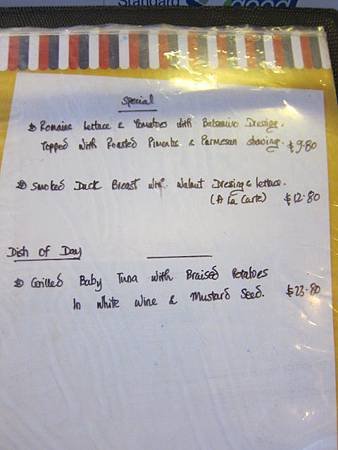 Standard
good
Special
Romaine lettuce & Tomatoes with Balsamico Dressige.
Topped with Roasted Piments & Parmesan shavings. $9.80
Smoked Duck Breast with Walnut Dressing & lettuce.
(A la Carte) $12.80
Dish of Day
Grilled Baby Tuna with Braised Potatoes
In white wine & Mustard Seed. $23.80